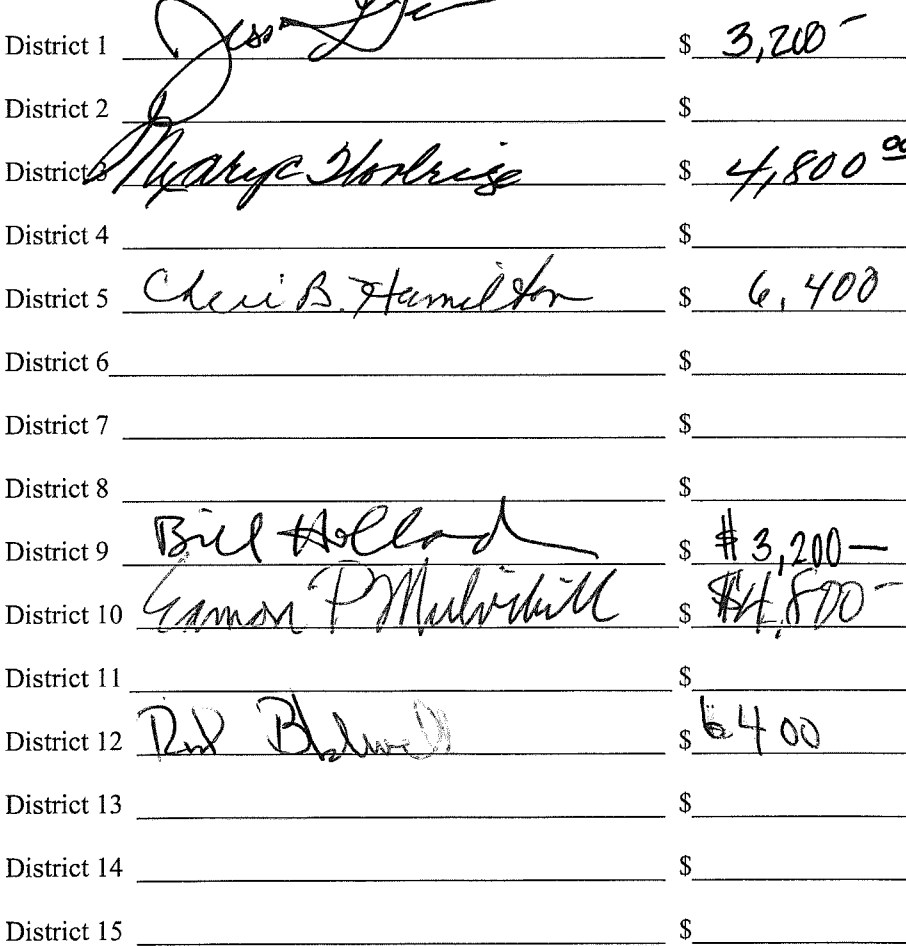 District 1 $ 3,200-
District 2 $
District 3 $ 4,800 00
District 4 $
District 5 Cheri B. Hamilton $ 6,400
District 6 $
District 7 $
District 8 $
District 9 Bill Hollad $ $3,200—
District 10 Eamon P Mulvihill $ $4,800-
District 11 $
District 12 $ 6400
District 13 $
District 14 $
District 15 $